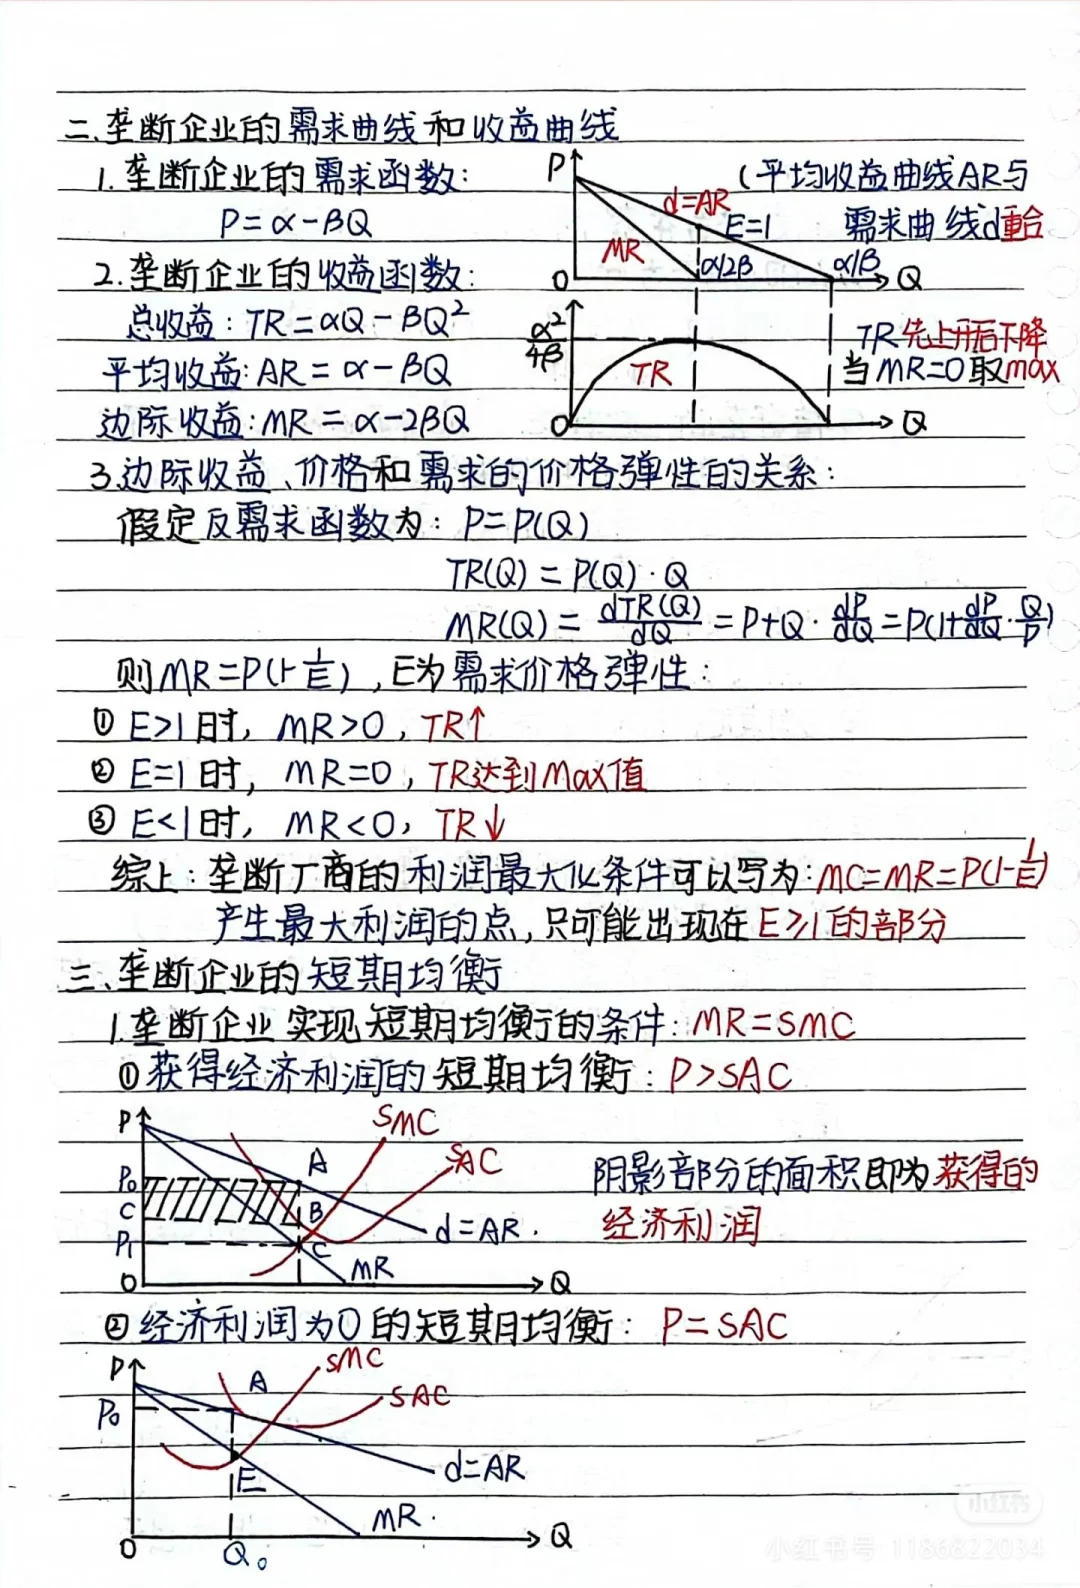 二.垄断企业的需求曲线和收益曲线
1.垄断企业的需求函数:
P=α-βQ
P
d=AR
E=1
MR
α/2β
α/β
O
Q
(平均收益曲线AR与
需求曲线d重合
2.垄断企业的收益函数:
总收益: TR=αQ-βQ²
平均收益: AR=α-βQ
边际收益: MR=α-2βQ
α²/4β
TR
O
Q
TR先上升后下降
当MR=0取max
3.边际收益、价格和需求的价格弹性的关系:
假定反需求函数为: P=P(Q)
TR(Q)=P(Q)·Q
MR(Q)=dTR(Q)/dQ=P+Q·dP/dQ=P(1+dP/dQ·Q/P)
则MR=P(1-1/E),E为需求价格弹性:
① E>1时, MR>0, TR↑
② E=1时, MR=0, TR达到Max值
③ E<1时, MR<0, TR↓
综上:垄断厂商的利润最大化条件可以写为:MC=MR=P(1-1/E)
产生最大利润的点,只可能出现在E≥1的部分
三、垄断企业的短期均衡
1.垄断企业实现短期均衡的条件: MR=SMC
①获得经济利润的短期均衡: P>SAC
P
SMC
A
SAC
P₀
C
B
P₁
C
d=AR.
MR
O
Q
阴影部分的面积即为获得的
经济利润
②经济利润为0的短期均衡: P=SAC
P
SMC
A
SAC
P₀
E
d=AR
MR.
O
Q₀
Q
小红书
小红书号 1186822034